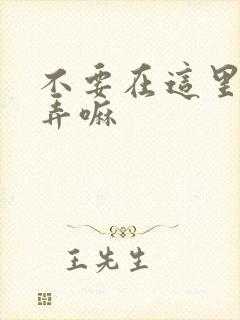 不要在這里
弄嘛
王先生